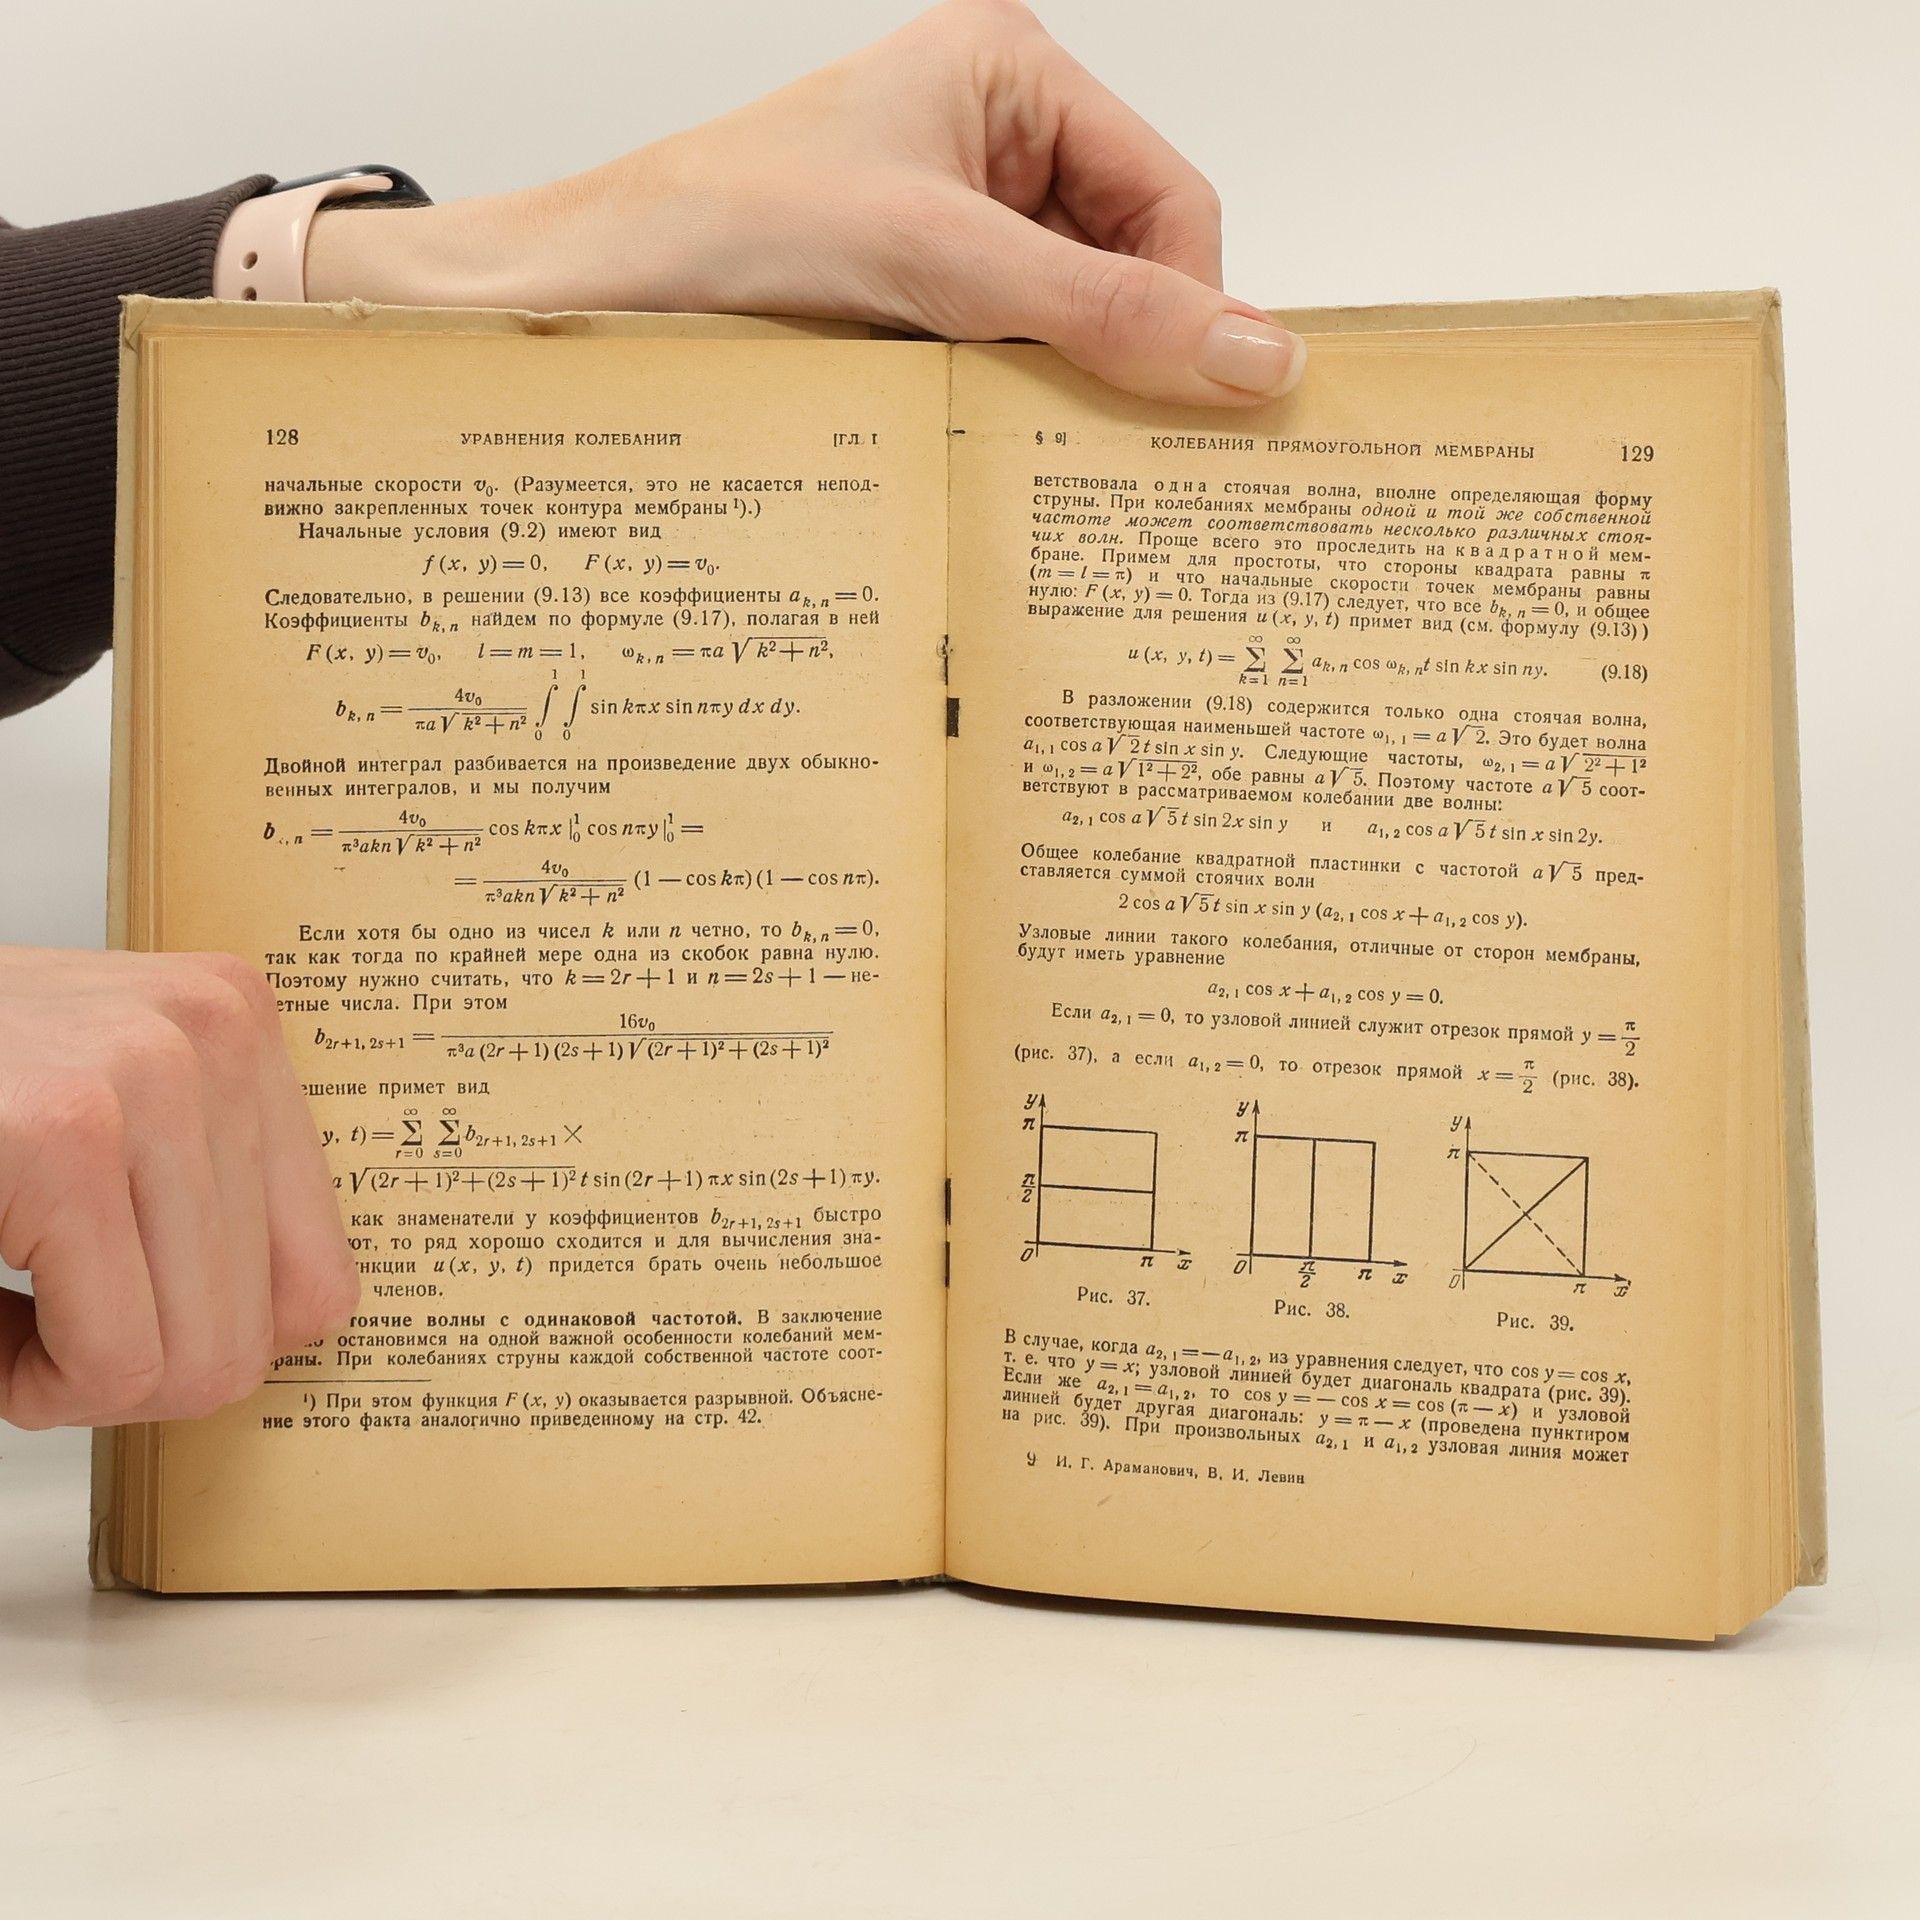 128 УРАВНЕНИЯ КОЛЕБАНИЙ [ГЛ. I
начальные скорости v₀. (Разумеется, это не касается непод-
вижно закрепленных точек контура мембраны ¹).)
Начальные условия (9.2) имеют вид
f (x, y) = 0, F (x, y) = v₀.
Следовательно, в решении (9.13) все коэффициенты a_{k, n} = 0.
Коэффициенты b_{k, n} найдем по формуле (9.17), полагая в ней
F (x, y) = v₀, l = m = 1, ω_{k, n} = πa √(k² + n²),
b_{k, n} = 4v₀ / (πa √(k² + n²)) ∫₀¹ ∫₀¹ sin kπx sin nπy dx dy.
Двойной интеграл разбивается на произведение двух обыкно-
венных интегралов, и мы получим
b_{., n} = 4v₀ / (π³akn √(k² + n²)) cos kπx |₀¹ cos nπy |₀¹ =
= 4v₀ / (π³akn √(k² + n²)) (1 — cos kπ) (1 — cos nπ).
Если хотя бы одно из чисел k или n четно, то b_{k, n} = 0,
так как тогда по крайней мере одна из скобок равна нулю.
Поэтому нужно считать, что k = 2r + 1 и n = 2s + 1 — не-
етные числа. При этом
b_{2r+1, 2s+1} = 16v₀ / (π³a (2r + 1) (2s + 1) √((2r + 1)² + (2s + 1)²))
ешение примет вид
y, t) = ∑_{r=0}^{∞} ∑_{s=0}^{∞} b_{2r+1, 2s+1} ×
a √((2r + 1)² + (2s + 1)²) t sin (2r + 1) πx sin (2s + 1) πy.
как знаменатели у коэффициентов b_{2r+1, 2s+1} быстро
ют, то ряд хорошо сходится и для вычисления зна-
нкции u (x, y, t) придется брать очень небольшое
членов.
тоячие волны с одинаковой частотой. В заключение
остановимся на одной важной особенности колебаний мем-
раны. При колебаниях струны каждой собственной частоте соот-
¹) При этом функция F (x, y) оказывается разрывной. Объясне-
ние этого факта аналогично приведенному на стр. 42.
§ 9] КОЛЕБАНИЯ ПРЯМОУГОЛЬНОЙ МЕМБРАНЫ 129
ветствовала одна стоячая волна, вполне определяющая форму
струны. При колебаниях мембраны одной и той же собственной
частоте может соответствовать несколько различных стоя-
чих волн. Проще всего это проследить на квадратной мем-
бране. Примем для простоты, что стороны квадрата равны π
(m = l = π) и что начальные скорости точек мембраны равны
нулю: F (x, y) = 0. Тогда из (9.17) следует, что все b_{k, n} = 0, и общее
выражение для решения u (x, y, t) примет вид (см. формулу (9.13))
u (x, y, t) = ∑_{k=1}^{∞} ∑_{n=1}^{∞} a_{k, n} cos ω_{k, n}t sin kx sin ny. (9.18)
В разложении (9.18) содержится только одна стоячая волна,
соответствующая наименьшей частоте ω_{1, 1} = a √2. Это будет волна
a_{1, 1} cos a √2 t sin x sin y. Следующие частоты, ω_{2, 1} = a √(2² + 1²)
и ω_{1, 2} = a √(1² + 2²), обе равны a √5. Поэтому частоте a √5 соот-
ветствуют в рассматриваемом колебании две волны:
a_{2, 1} cos a √5 t sin 2x sin y и a_{1, 2} cos a √5 t sin x sin 2y.
Общее колебание квадратной пластинки с частотой a √5 пред-
ставляется суммой стоячих волн
2 cos a √5 t sin x sin y (a_{2, 1} cos x + a_{1, 2} cos y).
Узловые линии такого колебания, отличные от сторон мембраны,
будут иметь уравнение
a_{2, 1} cos x + a_{1, 2} cos y = 0.
Если a_{2, 1} = 0, то узловой линией служит отрезок прямой y = π/2
(рис. 37), а если a_{1, 2} = 0, то отрезок прямой x = π/2 (рис. 38).
y π π/2 0 π x
Рис. 37.
y π 0 π/2 π x
Рис. 38.
y π 0 π x
Рис. 39.
В случае, когда a_{2, 1} = — a_{1, 2}, из уравнения следует, что cos y = cos x,
т. е. что y = x; узловой линией будет диагональ квадрата (рис. 39).
Если же a_{2, 1} = a_{1, 2}, то cos y = — cos x = cos (π — x) и узловой
линией будет другая диагональ: y = π — x (проведена пунктиром
на рис. 39). При произвольных a_{2, 1} и a_{1, 2} узловая линия может
9 И. Г. Араманович, В. И. Левин